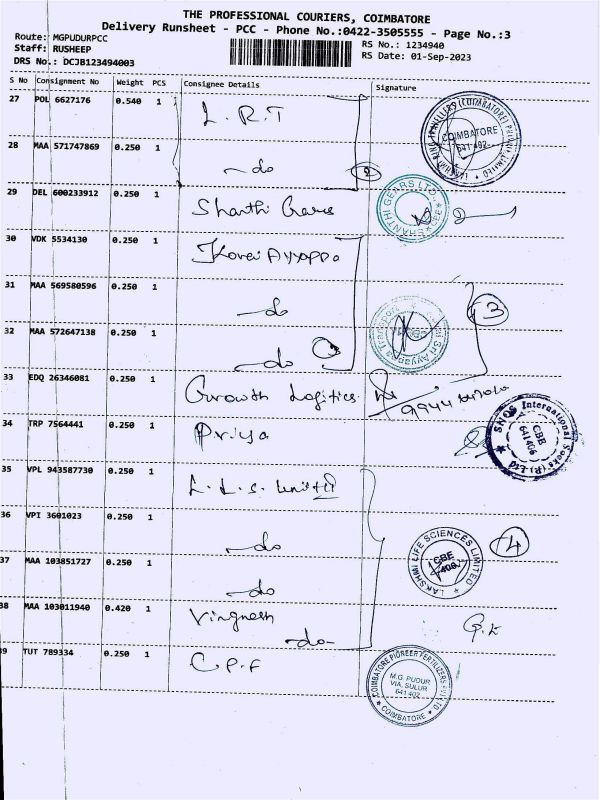 THE PROFESSIONAL COURIERS, COIMBATORE
Delivery Runsheet - PCC - Phone No.:0422-3505555 - Page No.:3
Route: MGPUDURPCC
RS No.: 1234940
Staff: RUSHEEP
RS Date: 01-Sep-2023
DRS No.: DCJB123494003
S No Consignment No Weight PCS Consignee Details Signature
27 POL 6627176 0.540 1 L.R.T
COIMBATORE 641 402
28 MAA 571747869 0.250 1 do 2
29 DEL 600233912 0.250 1 Shanthi Gears
SHANTHI GEARS LTD. CBE
30 VDK 5534130 0.250 1 Kovai Ayyappa
31 MAA 569580596 0.250 1 do 3
32 MAA 572647138 0.250 1 do 3
33 EDQ 26346081 0.250 1 Growth Logitics
34 TRP 7564441 0.250 1 Priya
SNQS International Socks (P) Ltd CBE 641406
35 VPL 943587730 0.250 1 L.L.S. Limited
36 VPI 3601023 0.250 1 do 4
37 MAA 103851727 0.250 1 do
LAKSHMI LIFE SCIENCES LIMITED CBE
38 MAA 103011940 0.420 1 Vingnesh do
39 TUT 789334 0.250 1 C.P.F
COIMBATORE PIONEER FERTILIZERS PVT LTD
M.G. PUDUR
VIA, SULUR
641 402
COIMBATORE